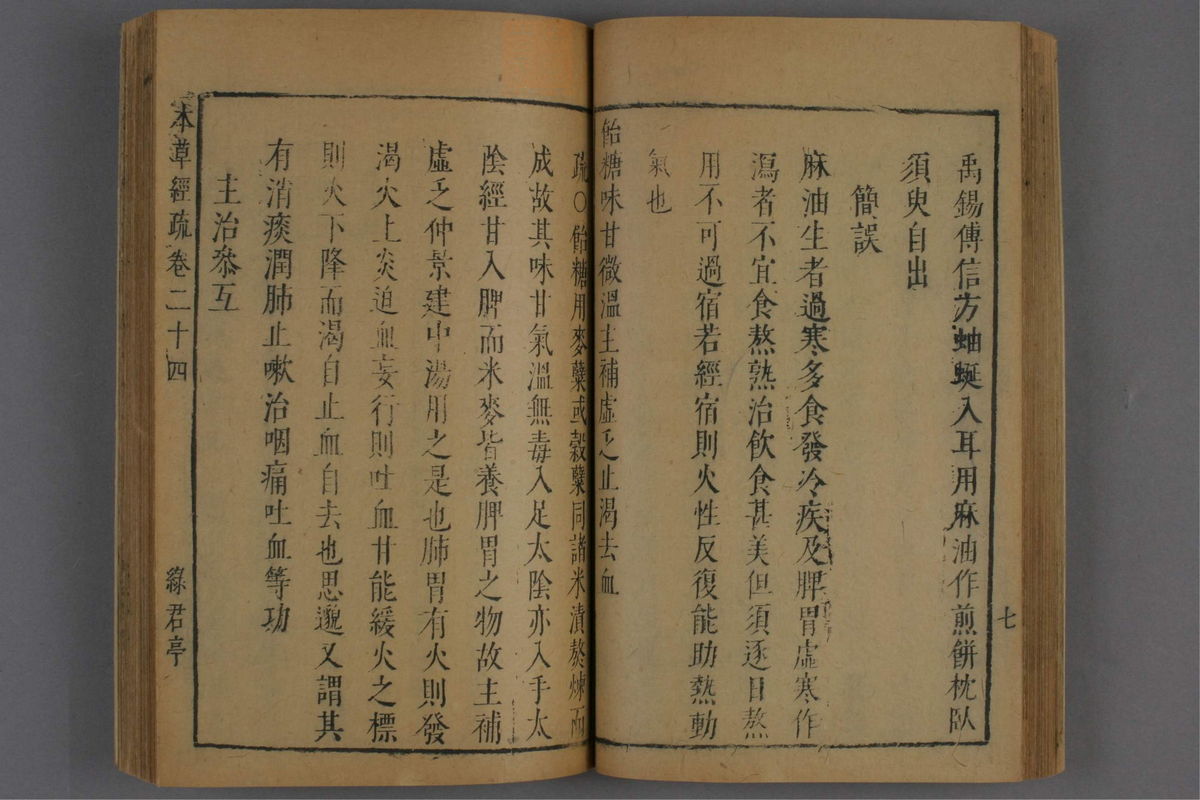 禹錫傅信方蚰蜒入耳用麻油作煎餅枕臥
須臾自出
簡誤
麻油生者過寒多食發冷疾及脾胃虛寒作
瀉者不宜食熬熟治飲食甚美但須逐日熬
用不可過宿若經宿則火性反復能助熱動
氣也
飴糖味甘微溫主補虛乏止渴去血
疏○飴糖用麥蘗或穀蘗同諸米漬熬煉而
成故其味甘氣溫無毒入足太陰亦入手太
陰經甘入脾而米麥皆養脾胃之物故主補
虛乏仲景建中湯用之是也肺胃有火則發
渴火上炎迫血妄行則吐血甘能緩火之標
則火下降而渴自止血自去也思邈又謂其
有消痰潤肺止嗽治咽痛吐血等功
主治叅互
七
本草經疏卷二十四
綠君亭